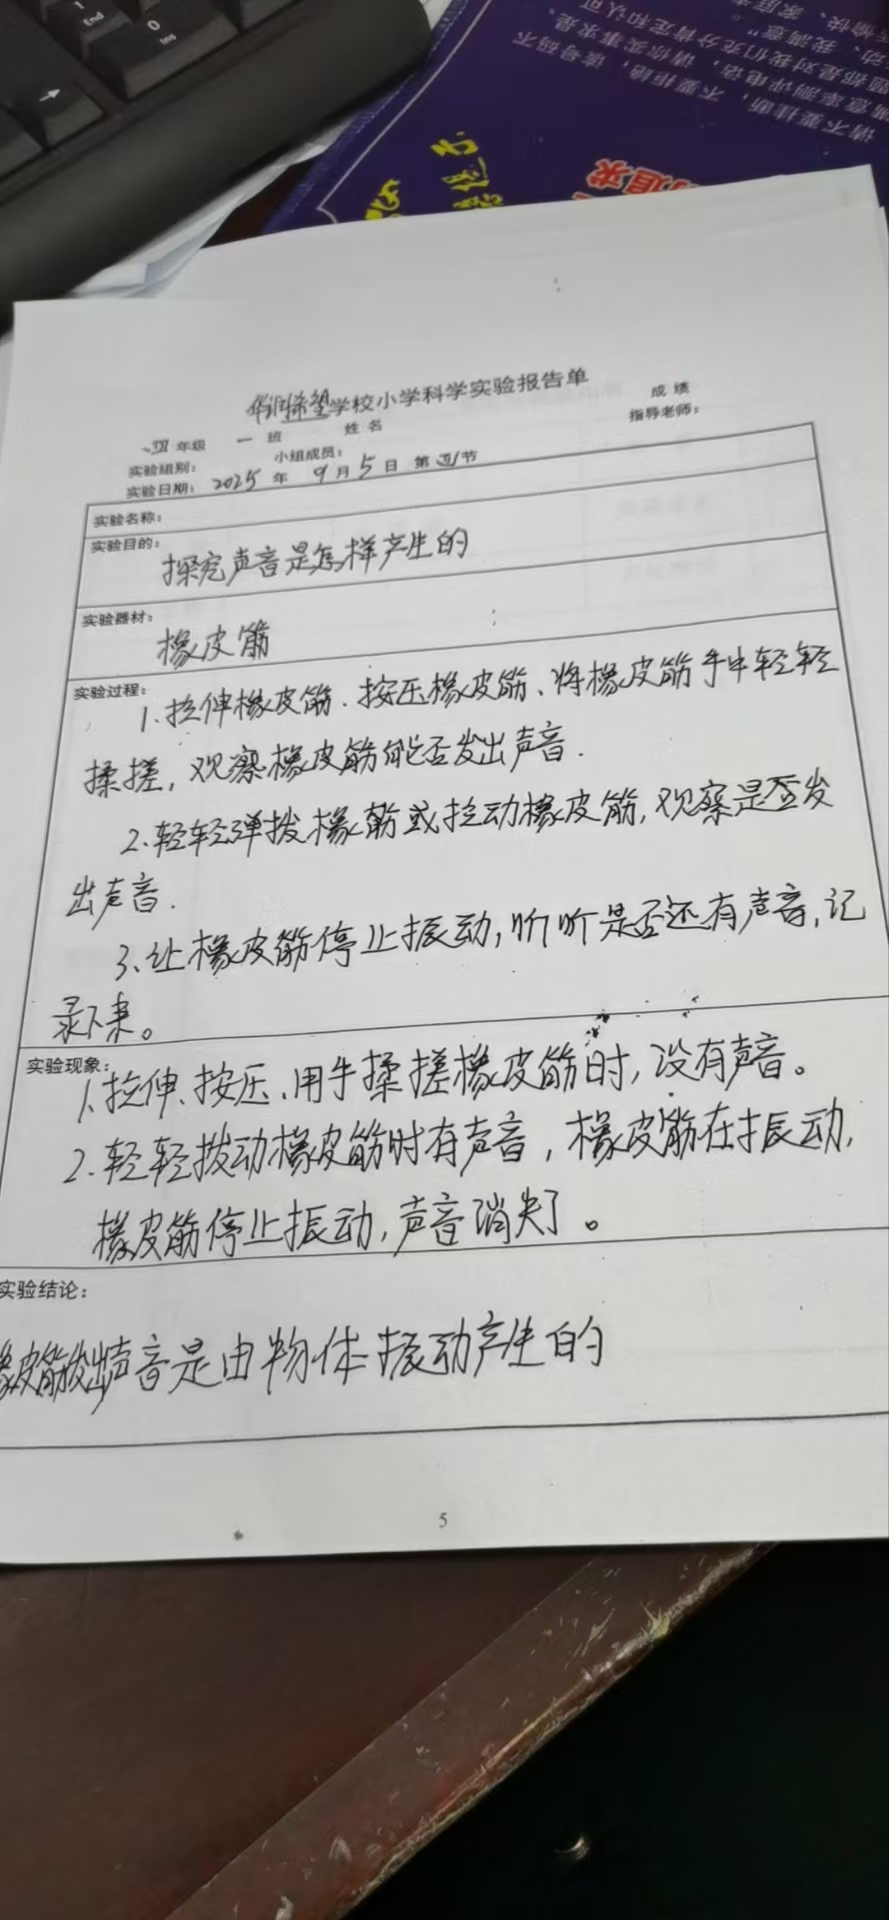 End
1
0
Ins
→
请不要挂断
不要拒绝
追求
希望学校小学科学实验报告单
四年级 一 班 姓 名 成 绩
实验组别: 小组成员: 指导老师:
实验日期: 2025 年 9 月 5 日 第 四 节
实验名称:
实验目的:
探究声音是怎样产生的
实验器材:
橡皮筋
实验过程:
1.拉伸橡皮筋、按压橡皮筋、将橡皮筋手中轻轻
揉搓,观察橡皮筋能否发出声音.
2.轻轻弹拨橡筋或拉动橡皮筋,观察是否发
出声音.
3.让橡皮筋停止振动,听听是否还有声音,记
录下来。
实验现象:
1.拉伸、按压、用手揉搓橡皮筋时,没有声音。
2.轻轻拨动橡皮筋时有声音,橡皮筋在振动,
橡皮筋停止振动,声音消失了。
实验结论:
橡皮筋发出声音是由物体振动产生的
5